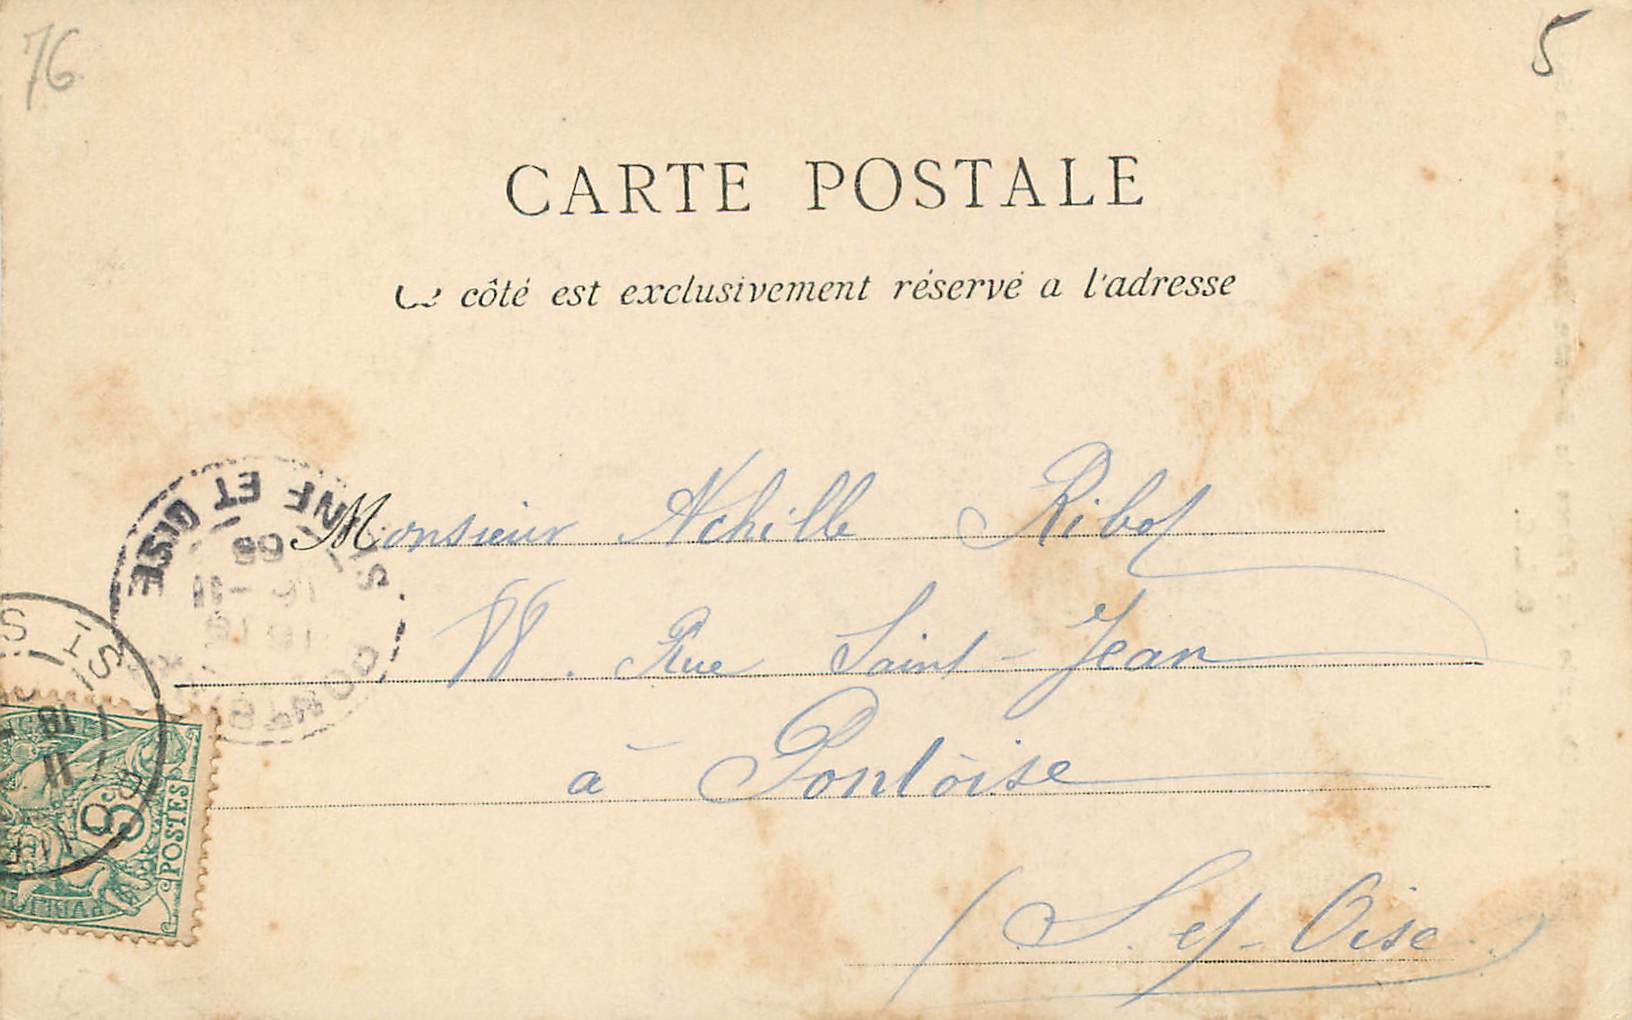 76
5
CARTE POSTALE
Ce côté est exclusivement réservé a l'adresse
Monsieur Achille Ribot
Rue Saint-Jean
à Pontoise
(S. et-Oise)
SEINE ET OISE
POSTES